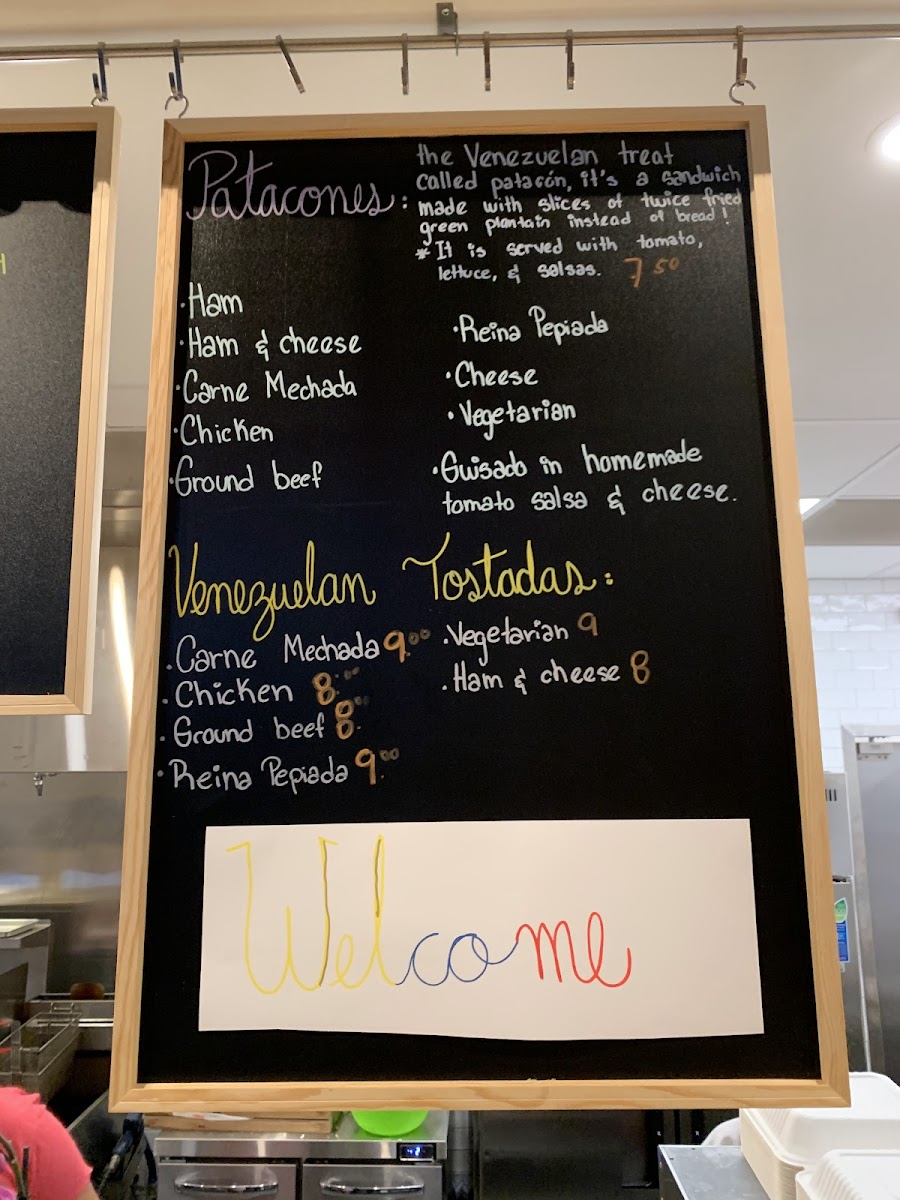 Patacones:
the Venezuelan treat
called patacón, it's a sandwich
made with slices of twice fried
green plantain instead of bread!
* It is served with tomato,
lettuce, & salsas. 7 50
· Ham
· Ham & cheese
· Carne Mechada
· Chicken
· Ground beef
· Reina Pepiada
· Cheese
· Vegetarian
· Guisado in homemade
tomato salsa & cheese.
Venezuelan Tostadas:
· Carne Mechada 9.00
· Chicken 8.00
· Ground beef 8.00
· Reina Pepiada 9.00
· Vegetarian 9
· Ham & cheese 8
Welcome